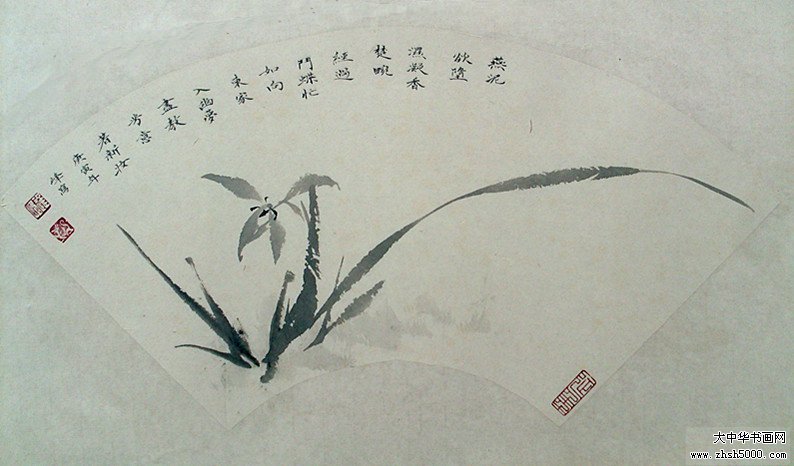 燕泥
欲墮
濕凝香
楚畹
經過
鬥蝶忙
如向
東家
入幽夢
盡教
芳意
著新妝
庚寅年
峰寫
大中华书画网
www.zhsh5000.com